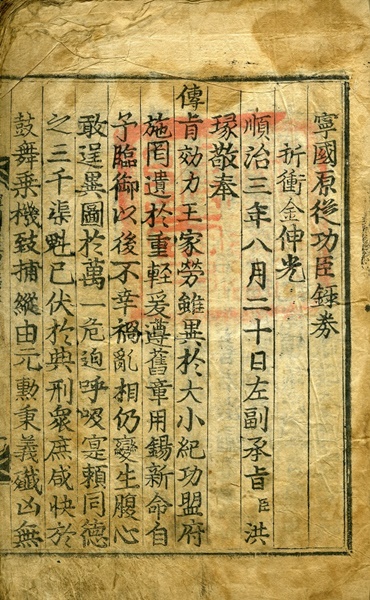 寧國原從功臣錄券
折衝金伸光
順治三年八月二十日左副承旨臣洪
瑑敬奉
傳旨效力王家勞雖異於大小紀功盟府
施罔遺於重輕爰遵舊章用錫新命自
予臨御以後不幸禍亂相仍變生腹心
敢逞異圖於萬一危迫呼吸寔賴同德
之三千渠魁已伏於典刑衆庶咸快於
鼓舞乗機致捕縱由元勳秉義殲凶無